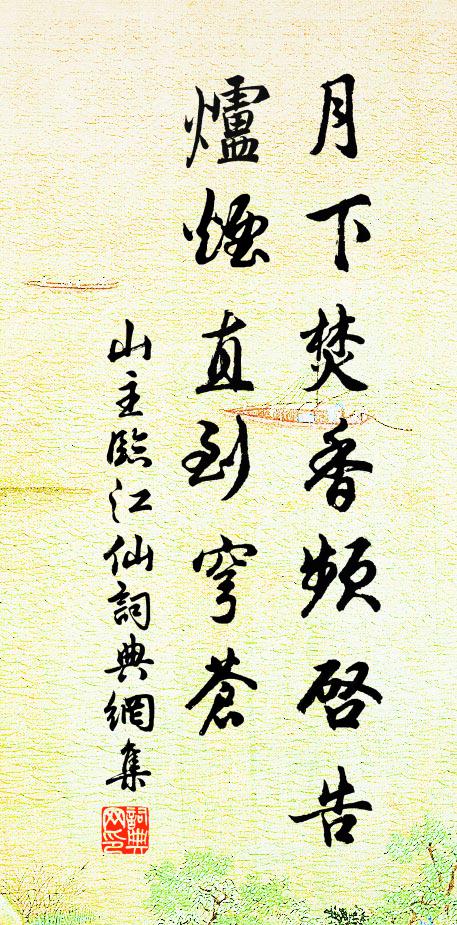 月下焚香頻啓告
爐煙直到穹蒼
山主臨江仙詞典網集
詞典網印